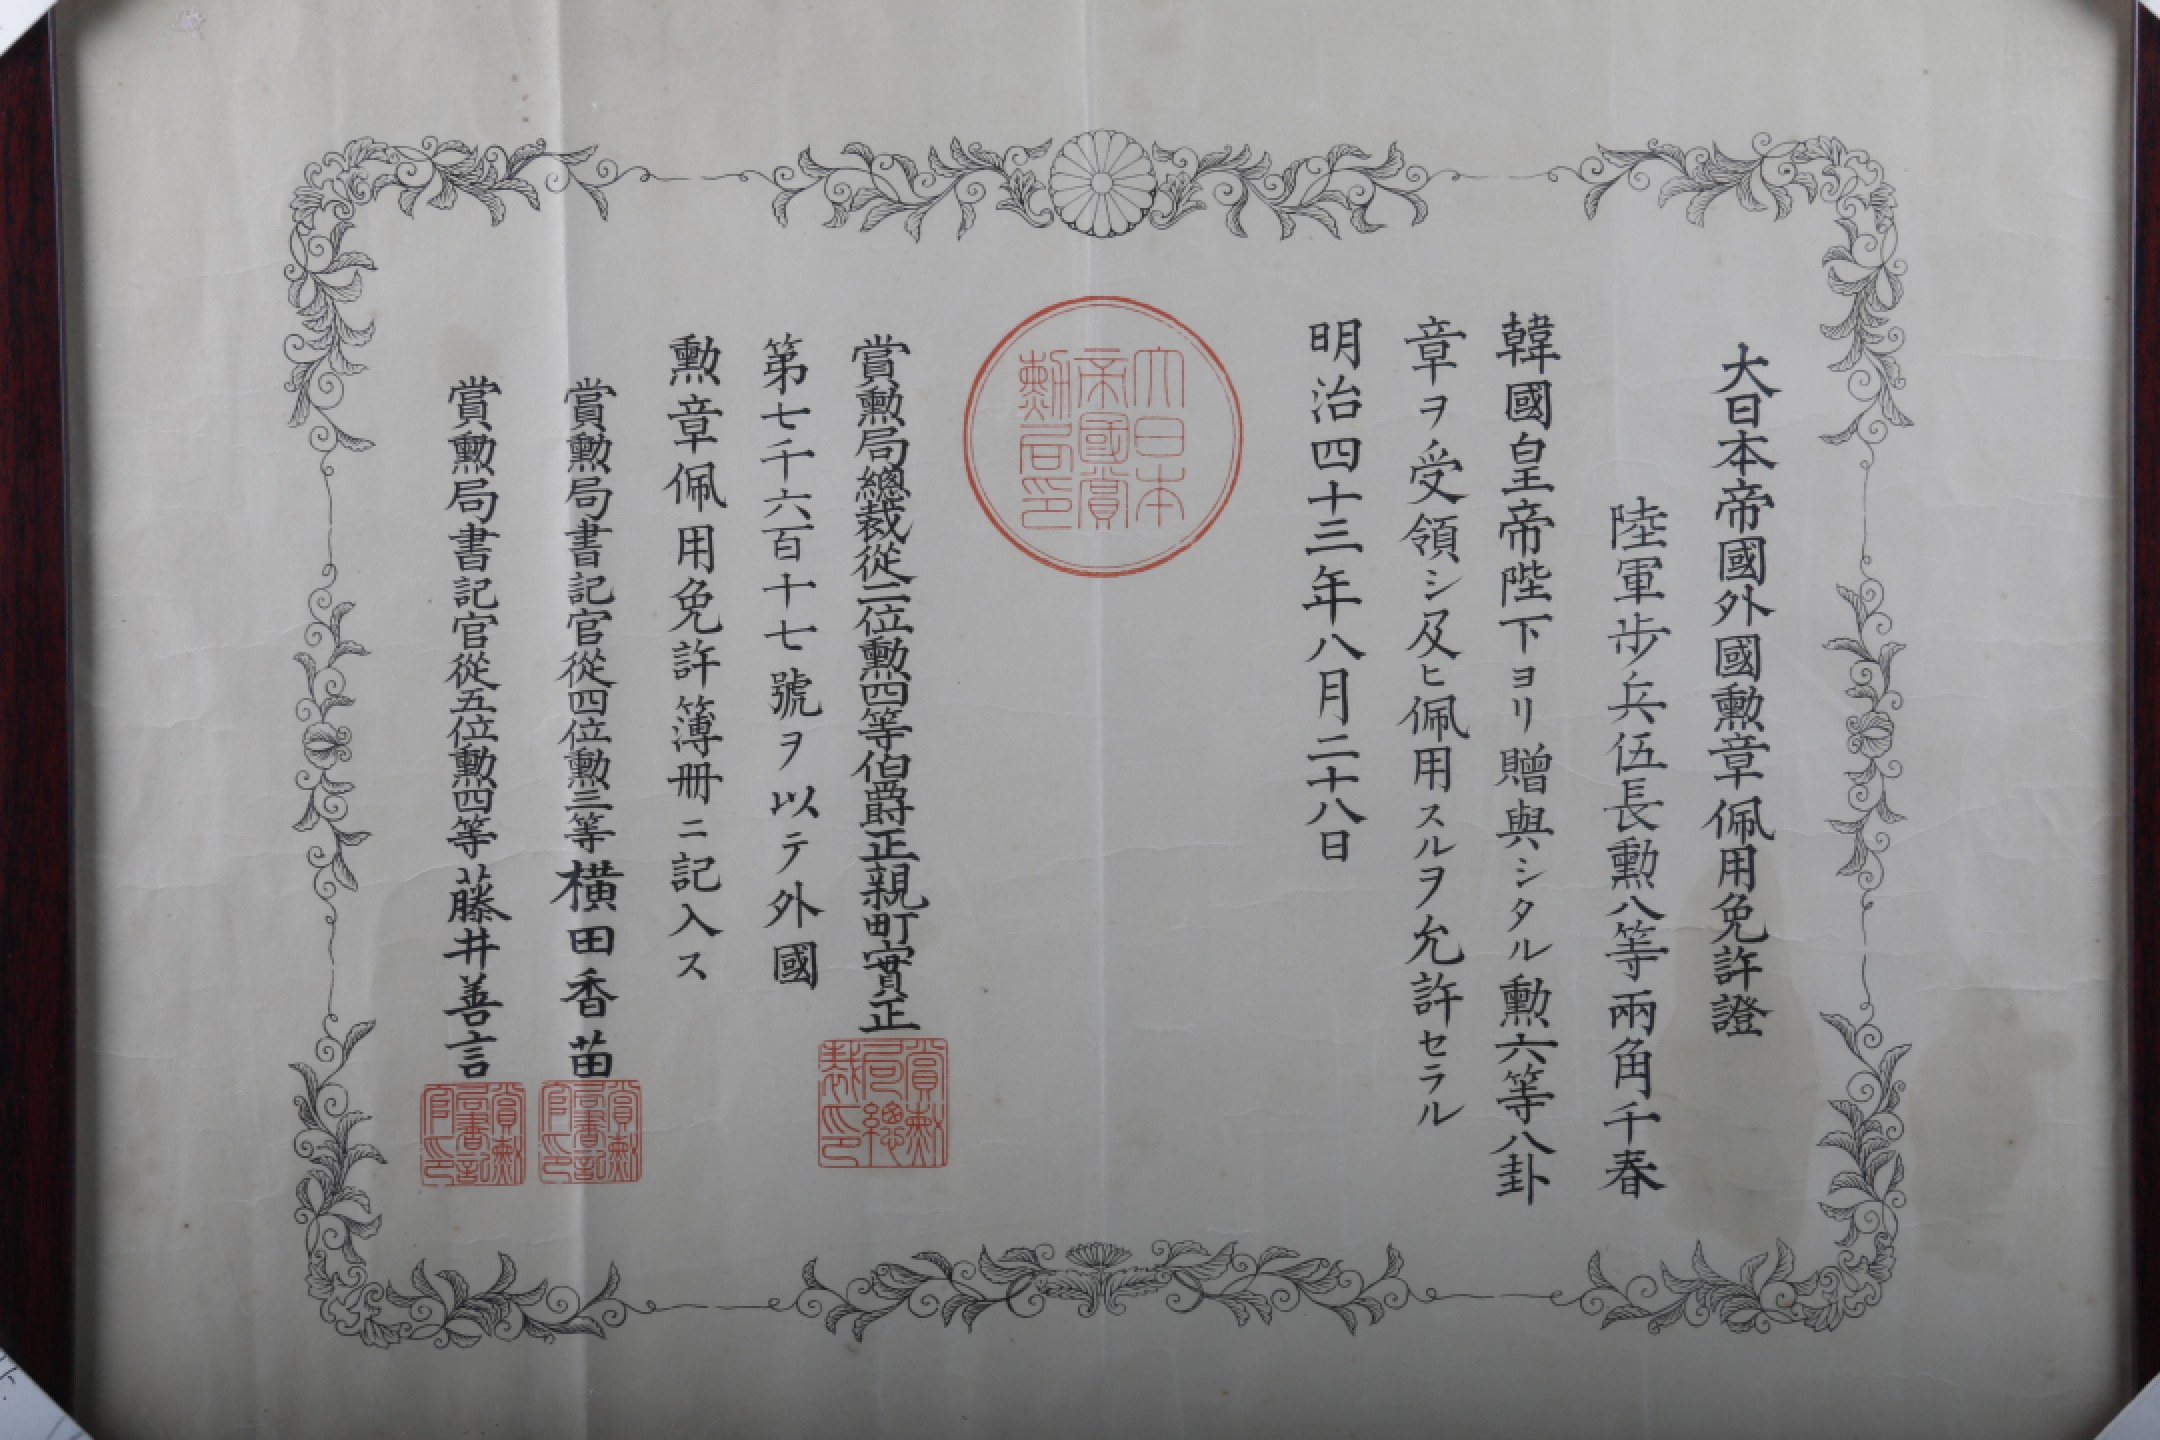 大日本帝國外國勲章佩用免許證
陸軍歩兵伍長勲八等兩角千春
韓國皇帝陛下ヨリ贈與シタル勲六等八卦
章ヲ受領シ及ヒ佩用スルヲ允許セラル
明治四十三年八月二十八日
大日本
帝國賞
勲局印
賞勲局總裁從二位勲四等伯爵正親町實正
賞勲
局總
裁印
第七千六百十七號ヲ以テ外國
勲章佩用免許簿冊ニ記入ス
賞勲局書記官從四位勲三等横田香苗
賞勲
局書記
官印
賞勲局書記官從五位勲四等藤井善言
賞勲
局書記
官印